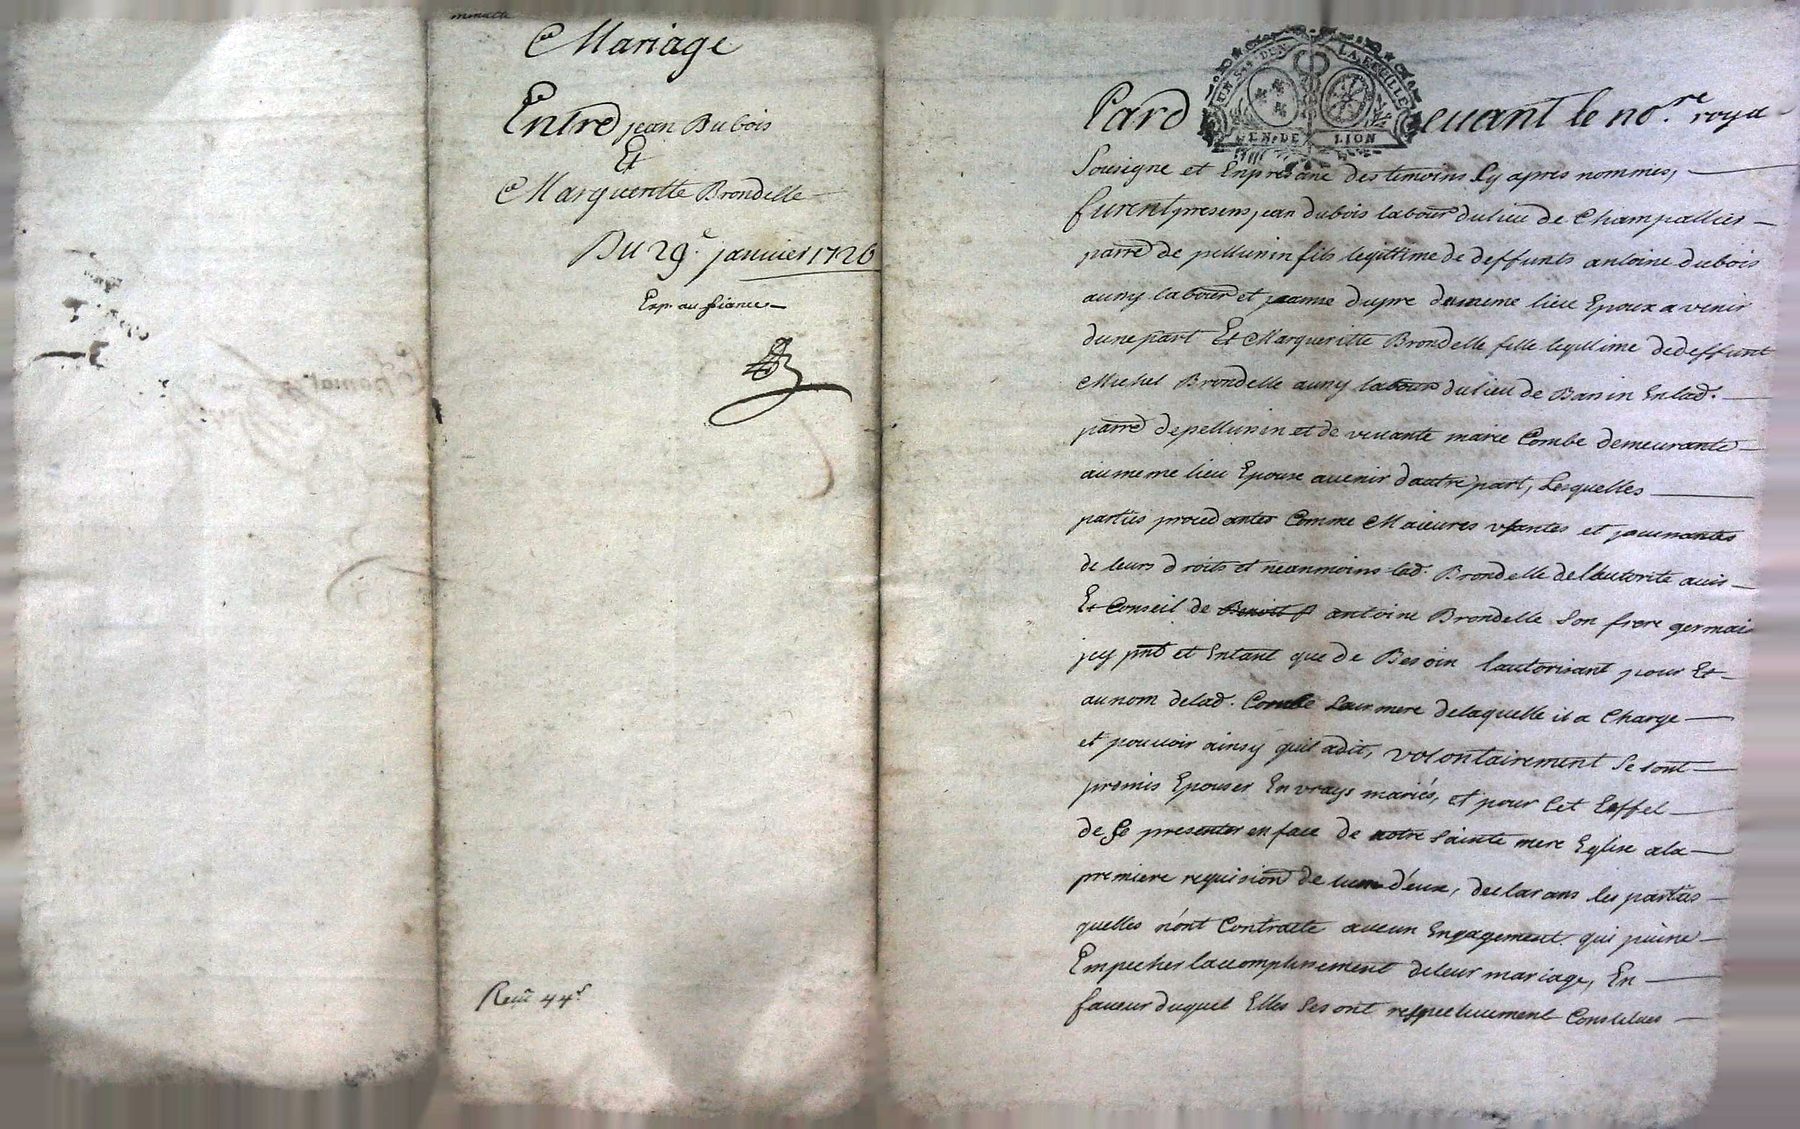 minutte
Mariage
Entre jean Dubois
Et
Margueritte Brondelle
Du 29e janvier 1726
Exp. au fiance
Reçu 44s
UN S. 4 DEN. LA FEUILLE
GEN. DE LION
Pardevant le nore. royal
Sousigne et Enpresance des temoins Cy apres nommes,
furent presens jean dubois labour du lieu de Champallier
parre de pellussin fils legittime de deffunts antoine dubois
auny labour et jeanne dupre du meme lieu Epoux a venir
dune part Et Margueritte Brondelle fille legitime de deffunt
Michel Brondelle auny labour du lieu de Bassin En lad.
parre de pellussin et de vivante marie Combe demeurante
au meme lieu Epouse avenir dautre part, Lesquelles
parties procedantes Comme Maieures usantes et jouissantes
de leurs droits et neanmoins lad. Brondelle de l'autorite avis
Et Conseil de Benoit antoine Brondelle Son frere germain
jcy pnt et Entant que de Besoin l'autorisant pour Et
au nom de lad. Combe Leur mere de laquelle il a Charge
et pouvoir ainsy quil a dit, volontairement Se sont
promis Epouser En vrays mariés, et pour Cet Eeffet
de Se presenter en face de notre Sainte mere Eglise a la
premiere requision de lun d'eux, declarans les parties
quelles n'ont Contracte aucun Engagement qui puisse
Empecher laccomplissement de leur mariage, En
faveur duquel Elles Se sont respectivement Constitues